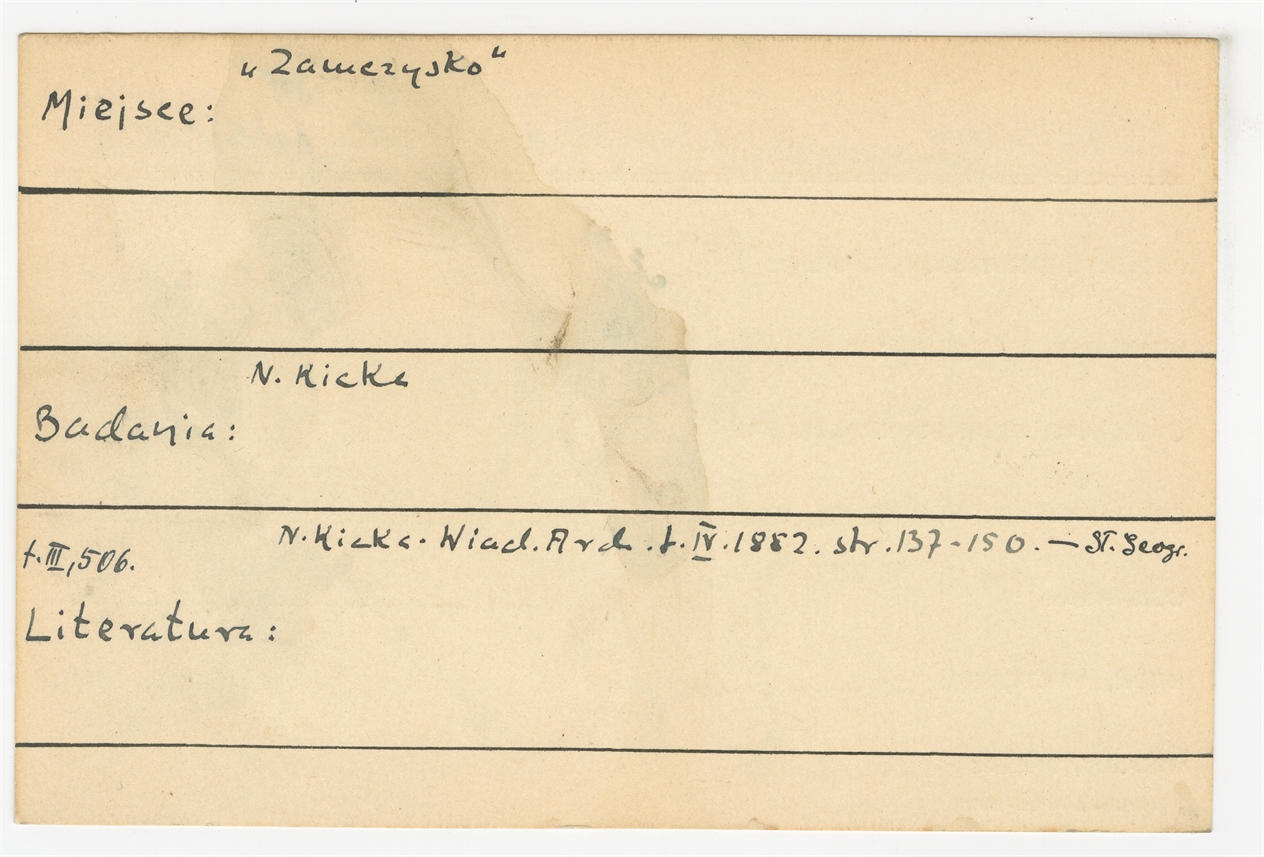 „Zamczysko"
Miejsce:
N. Kicka
Badania:
N. Kicka. Wiad. Arch. t. IV. 1882. str. 137-150. — Sł. Geogr.
t. III, 506.
Literatura: